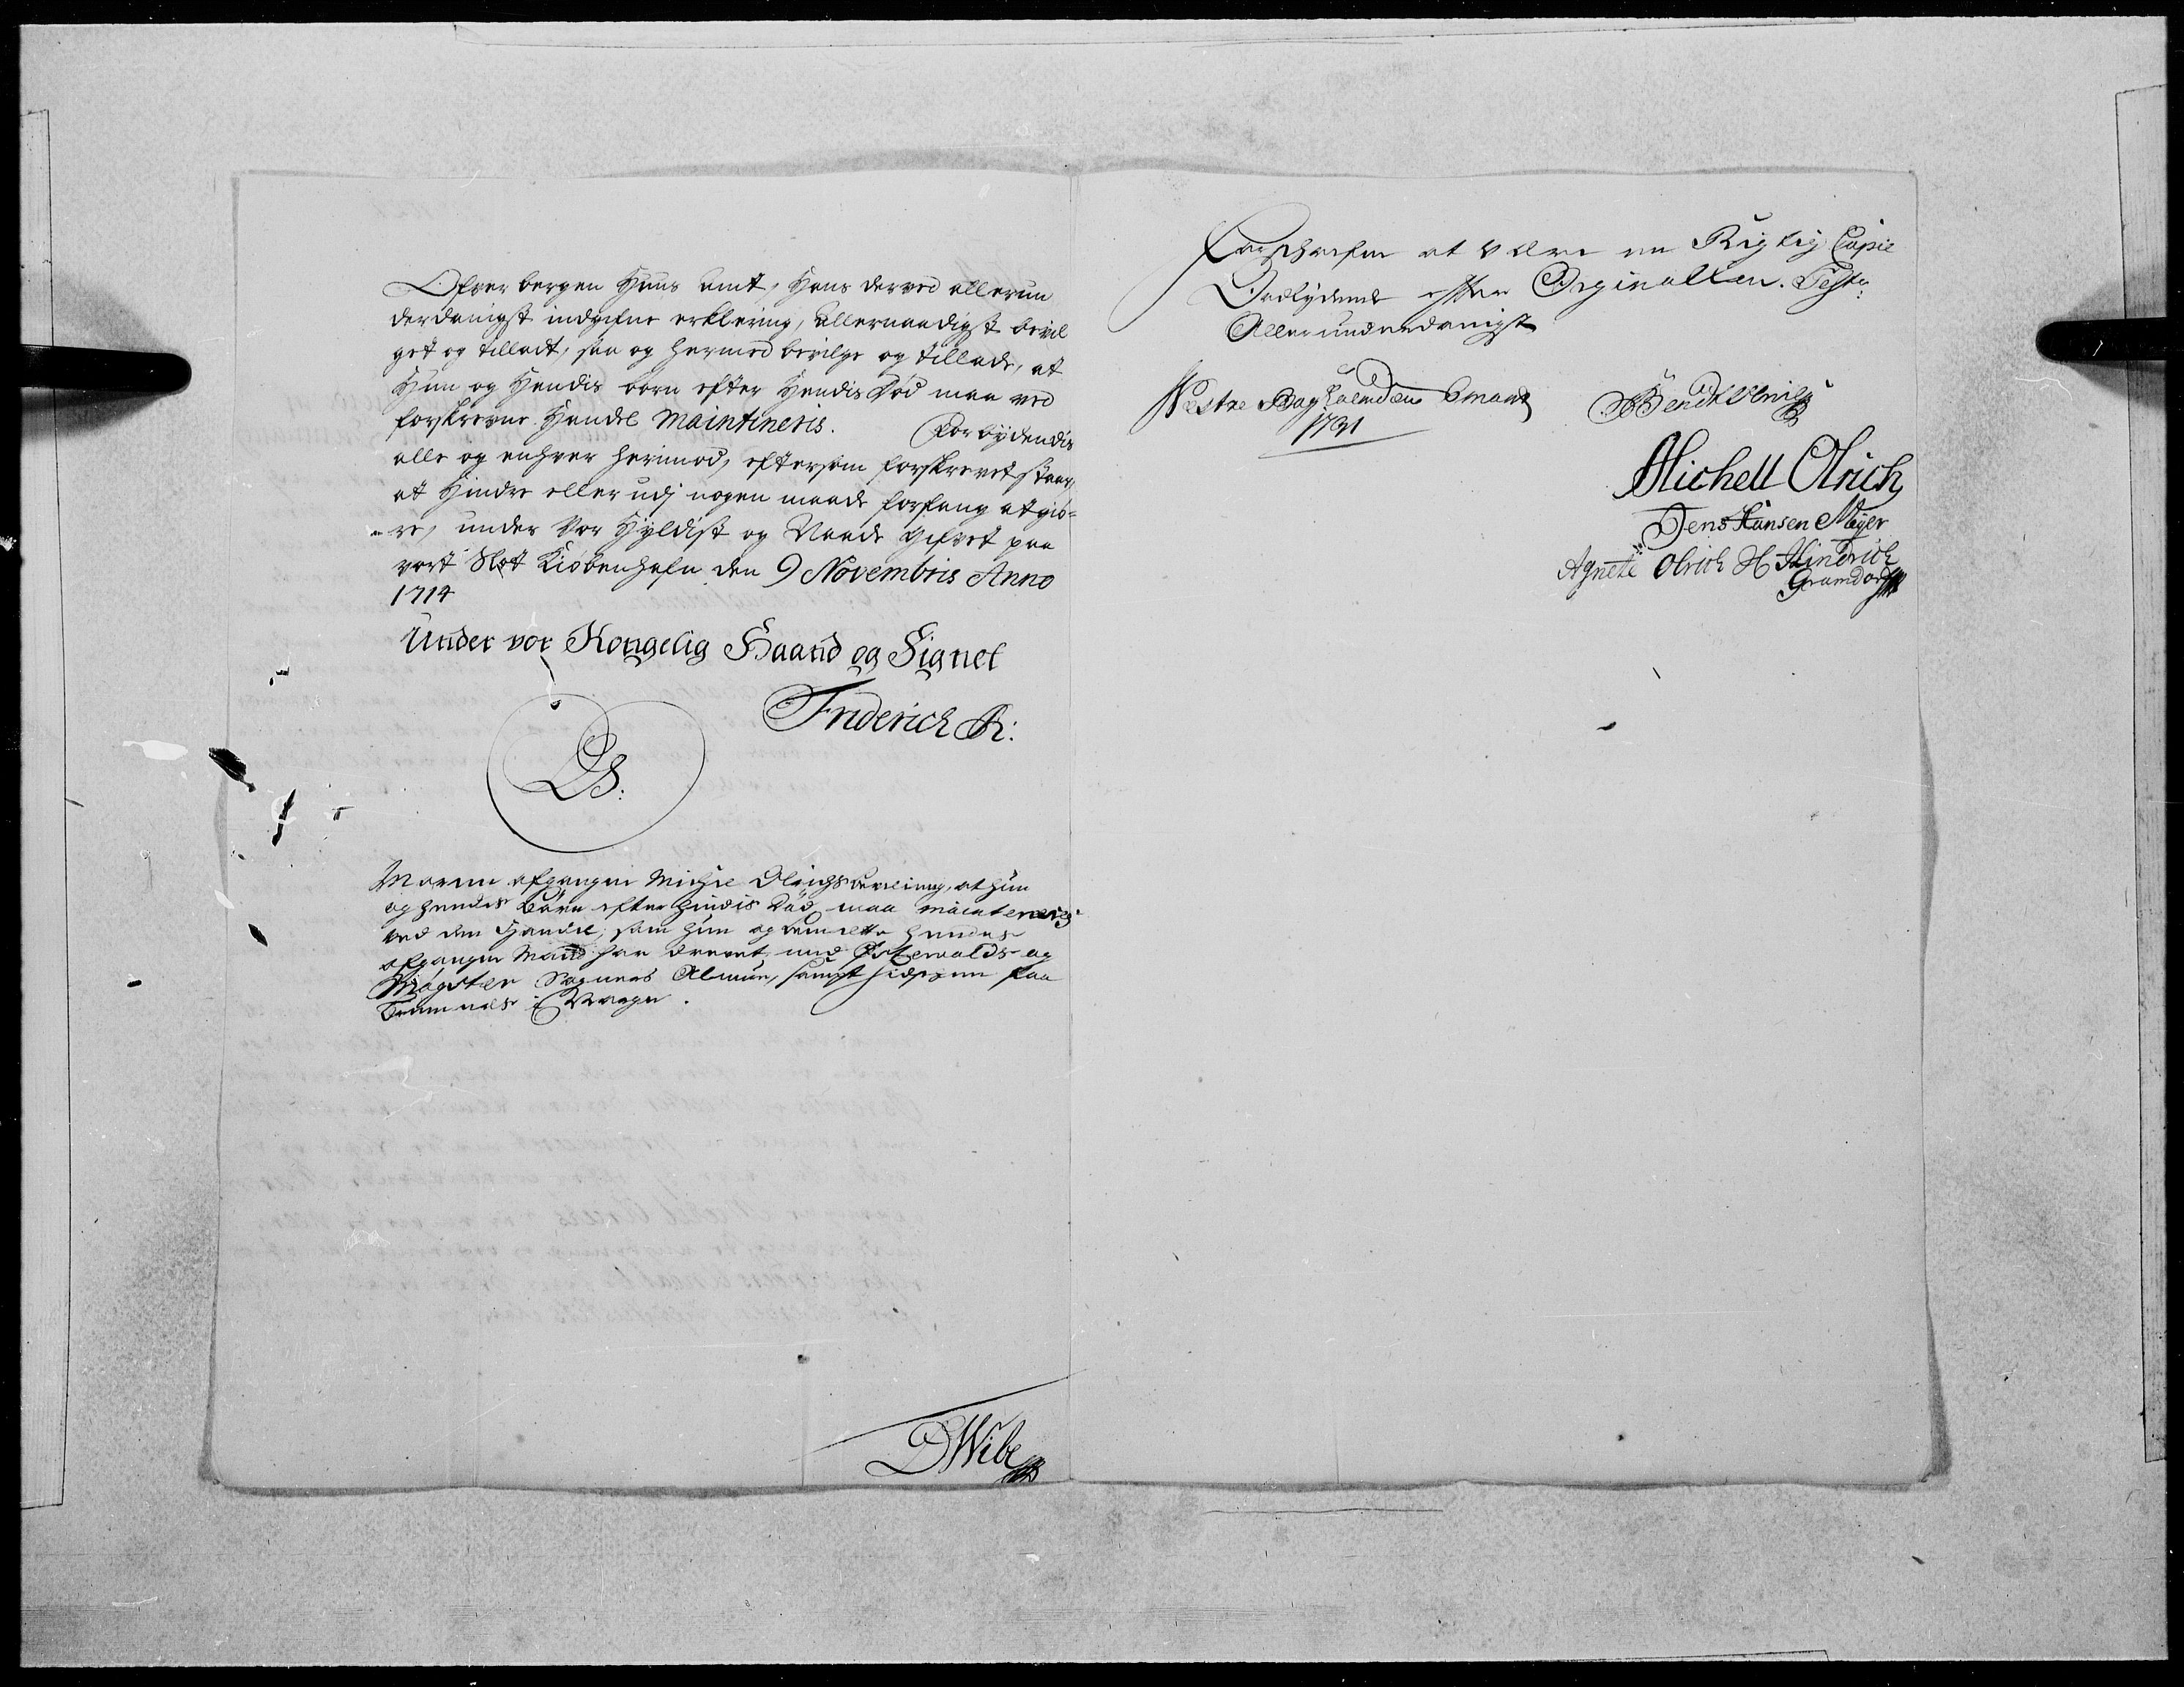 Ofver bergen Huus amt, Hans derved allerun
derdanigst indgifne erklering, allernaadigst bevil
get og tilladt, saa og hermed bevilge og tillade, at
Hun og Hendis børn efter Hendis Død maa ved
forskrevne Handel Maintineris. Forbydendis
alle og enhver herimod, eftersom forskrevet staar,
at Hindre eller udj nogen maade forfang at giø-
re, under Vor Hyldist og Naade Gifvet paa
vort Slot Kiøbenhafn den 9 Novembris Anno
1714
Under vor Kongelig Haand og Signet
Friderich R:
LS:
Maren afgangen Michel Olrichs bevilling, at hun
og hendes Børn efter hendis Død maa mainteneris
ved den Handel, som hun og hendes
afgangen Mand har drevet med Østewolds og
Sogners Almue, sampt
i Norge.
DWibe
Forschrefne at være en Rigtig Copie
Ordlydende efter Orginallen. Testr:
Allerunderdanigst
1731
Bendt Olrich
Michell Olrich
Jens Hansen Meyer
Agnete Olrich H Hindrich
Gramdorff